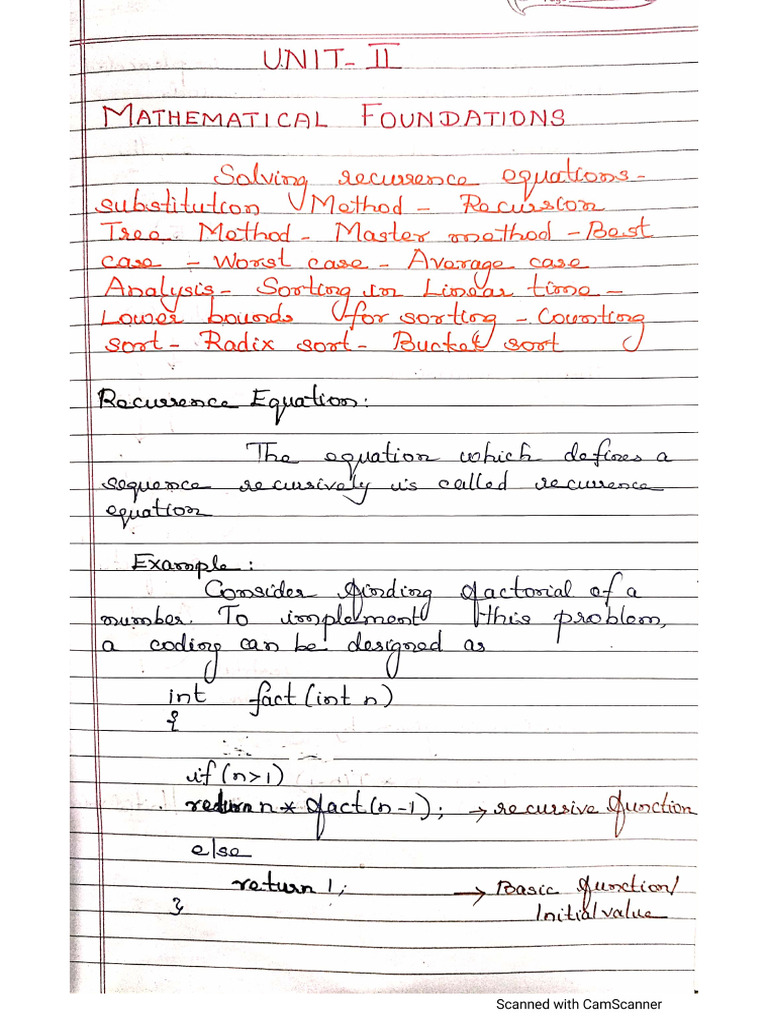 UNIT- II
MATHEMATICAL FOUNDATIONS
Solving recurrence equations-
substitution Method - Recursion
Tree Method - Master method - Best
case - Worst case - Average case
Analysis - Sorting in Linear time -
Lower bounds for sorting - Counting
sort - Radix sort - Bucket sort
Recurrence Equation:
The equation which defines a
sequence recursively is called recurrence
equation
Example:
Consider finding factorial of a
number. To implement this problem,
a coding can be designed as
int fact(int n)
{
if(n>1)
return n * fact(n-1); → recursive function
else
return 1; → Basic function/
Initial value
}
Scanned with CamScanner